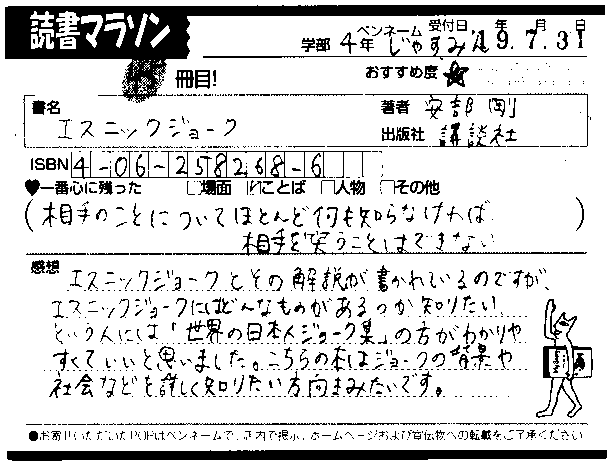 読書マラソン
ペンネーム 受付日 年 月 日
学部 4年 じゃすみん 19.7.31
冊目! おすすめ度
書名 エスニックジョーク
著者 安部 剛
出版社 講談社
ISBN 4-06-258268-6
♥一番心に残った □場面 ☑ことば □人物 □その他
(相手のことについてほとんど何も知らなければ
相手を笑うことはできない)
感想
エスニックジョークとその解説が書かれているのですが、
エスニックジョークにはどんなものがあるのか知りたい
という人には「世界の日本人ジョーク集」の方がわかりや
すくていいと思いました。こちらの本はジョークの背景や
社会などを詳しく知りたい方向きみたいです。
●お寄せいただいたPOPはペンネームで、店内で掲示、ホームページおよび宣伝物への転載をご了承ください